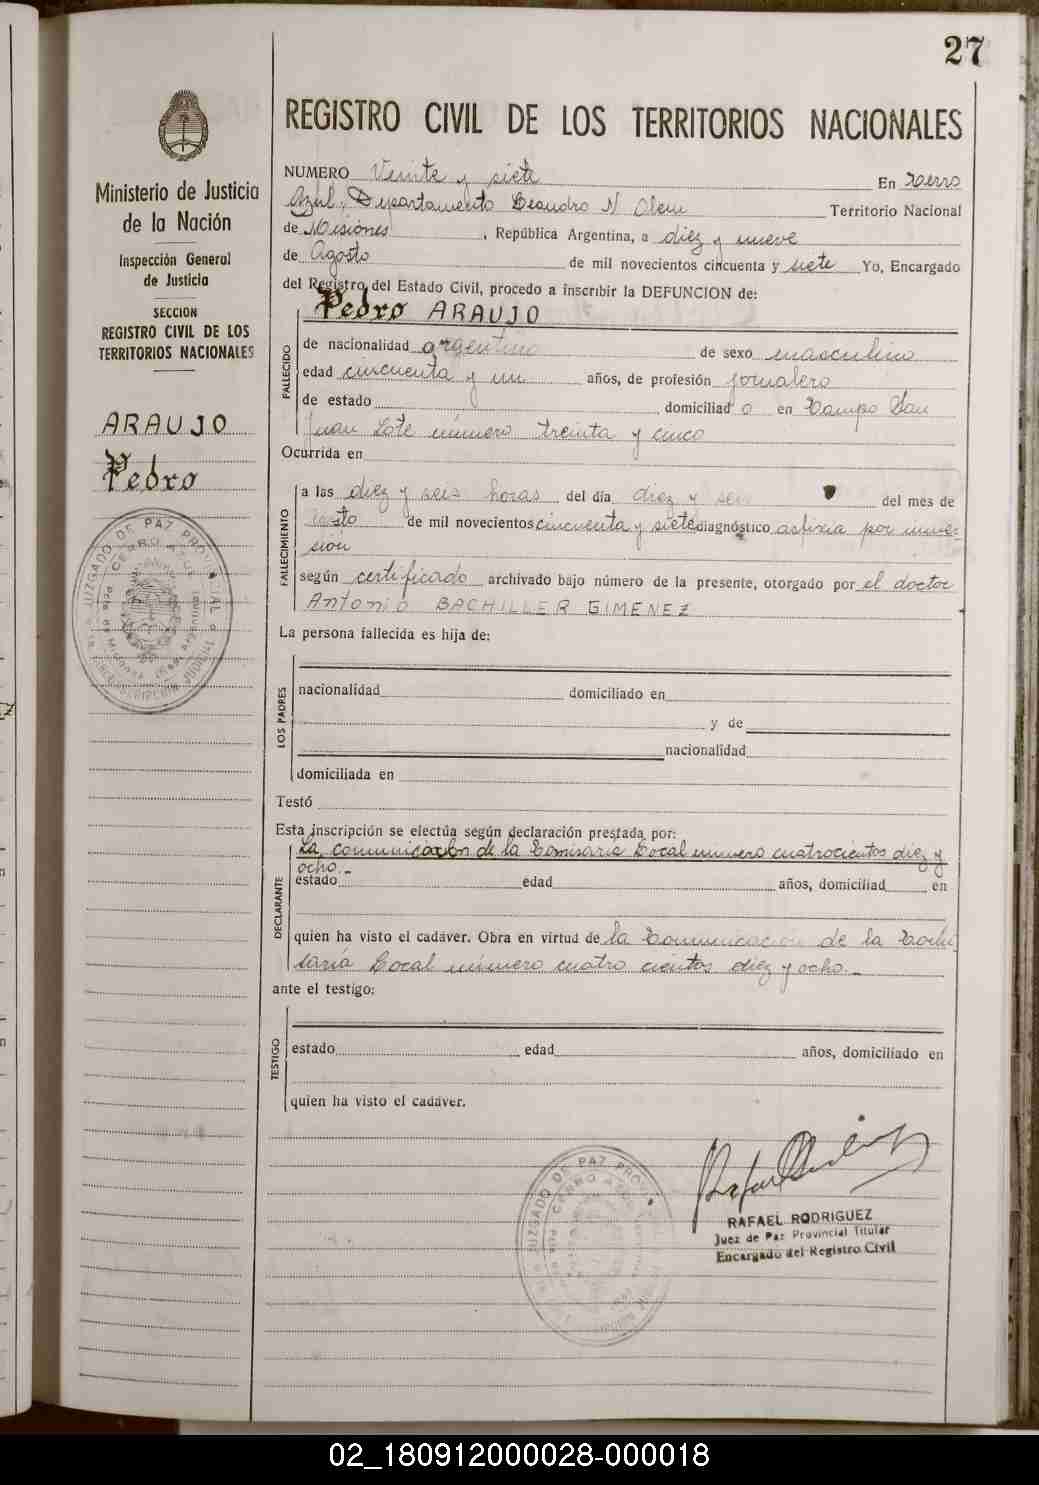 27
Ministerio de Justicia
de la Nación
Inspección General
de Justicia
SECCION
REGISTRO CIVIL DE LOS
TERRITORIOS NACIONALES
ARAUJO
Pedro
JUZGADO DE PAZ PROVINCIAL
CERRO AZUL
REGISTRO CIVIL DE LOS TERRITORIOS NACIONALES
NUMERO Veinte y siete En Cerro
Azul, Departamento Leandro N Alem Territorio Nacional
de Misiones, República Argentina, a diez y nueve
de Agosto de mil novecientos cincuenta y siete Yo, Encargado
del Registro del Estado Civil, procedo a inscribir la DEFUNCION de:
Pedro ARAUJO
FALLECIDO
de nacionalidad argentino de sexo masculino
edad cincuenta y un años, de profesión jornalero
de estado domiciliad o en Campo San
Juan Lote número treinta y cinco
Ocurrida en
FALLECIMIENTO
a las diez y seis horas del día diez y seis del mes de
Agosto de mil novecientos cincuenta y siete diagnóstico asfixia por inmer-
sión
según certificado archivado bajo número de la presente, otorgado por el doctor
Antonio BACHILLER GIMENEZ
La persona fallecida es hija de:
LOS PADRES
nacionalidad domiciliado en
y de
nacionalidad
domiciliada en
Testó
Esta inscripción se efectúa según declaración prestada por:
DECLARANTE
La comunicación de la Comisaria Local número cuatrocientos diez y
ocho.-
estado edad años, domiciliad en
quien ha visto el cadáver. Obra en virtud de la Comunicación de la Comi
saría Local número cuatro cientos diez y ocho.-
ante el testigo:
TESTIGO
estado edad años, domiciliado en
quien ha visto el cadáver.
JUZGADO DE PAZ PROVINCIAL
CERRO AZUL
RAFAEL RODRIGUEZ
Juez de Paz Provincial Titular
Encargado del Registro Civil
02_180912000028-000018